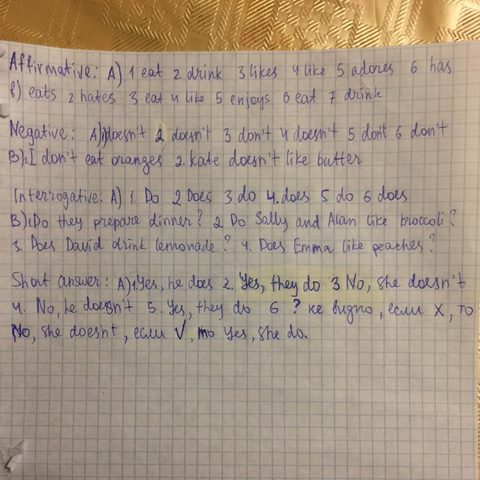 Affirmative: A) 1 eat 2 drink 3 likes 4 like 5 adores 6 has
B) eats 2 hates 3 eat 4 like 5 enjoys 6 eat 7 drink
Negative: A) 1 doesn't 2 doesn't 3 don't 4 doesn't 5 don't 6 don't
B) 1. I don't eat oranges 2. Kate doesn't like butter
Interrogative: A) 1. Do 2 Does 3 do 4. does 5 do 6 does
B) 1. Do they prepare dinner? 2. Do Sally and Alan like broccoli?
3. Does David drink lemonade? 4. Does Emma like peaches?
Short answer: A) 1 Yes, he does 2. Yes, they do 3 No, she doesn't
4. No, he doesn't 5. Yes, they do 6 ? не видно, если X, то
No, she doesn't, если V, то Yes, she do.